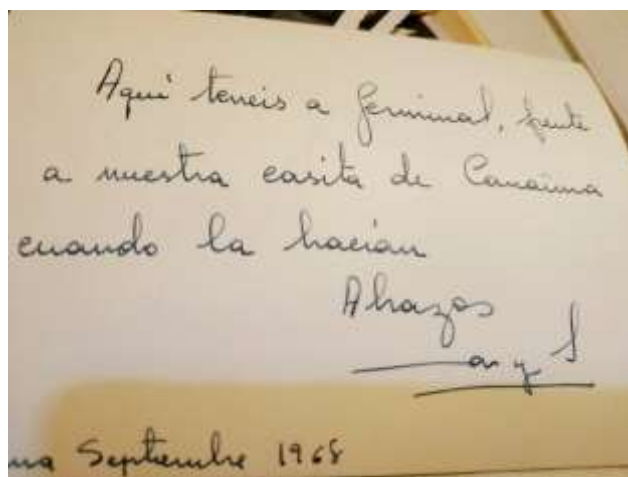 Aqui teneis a Germinal, frente
a nuestra casita de Canaima
cuando la hacian
Abrazos
Septiembre 1968